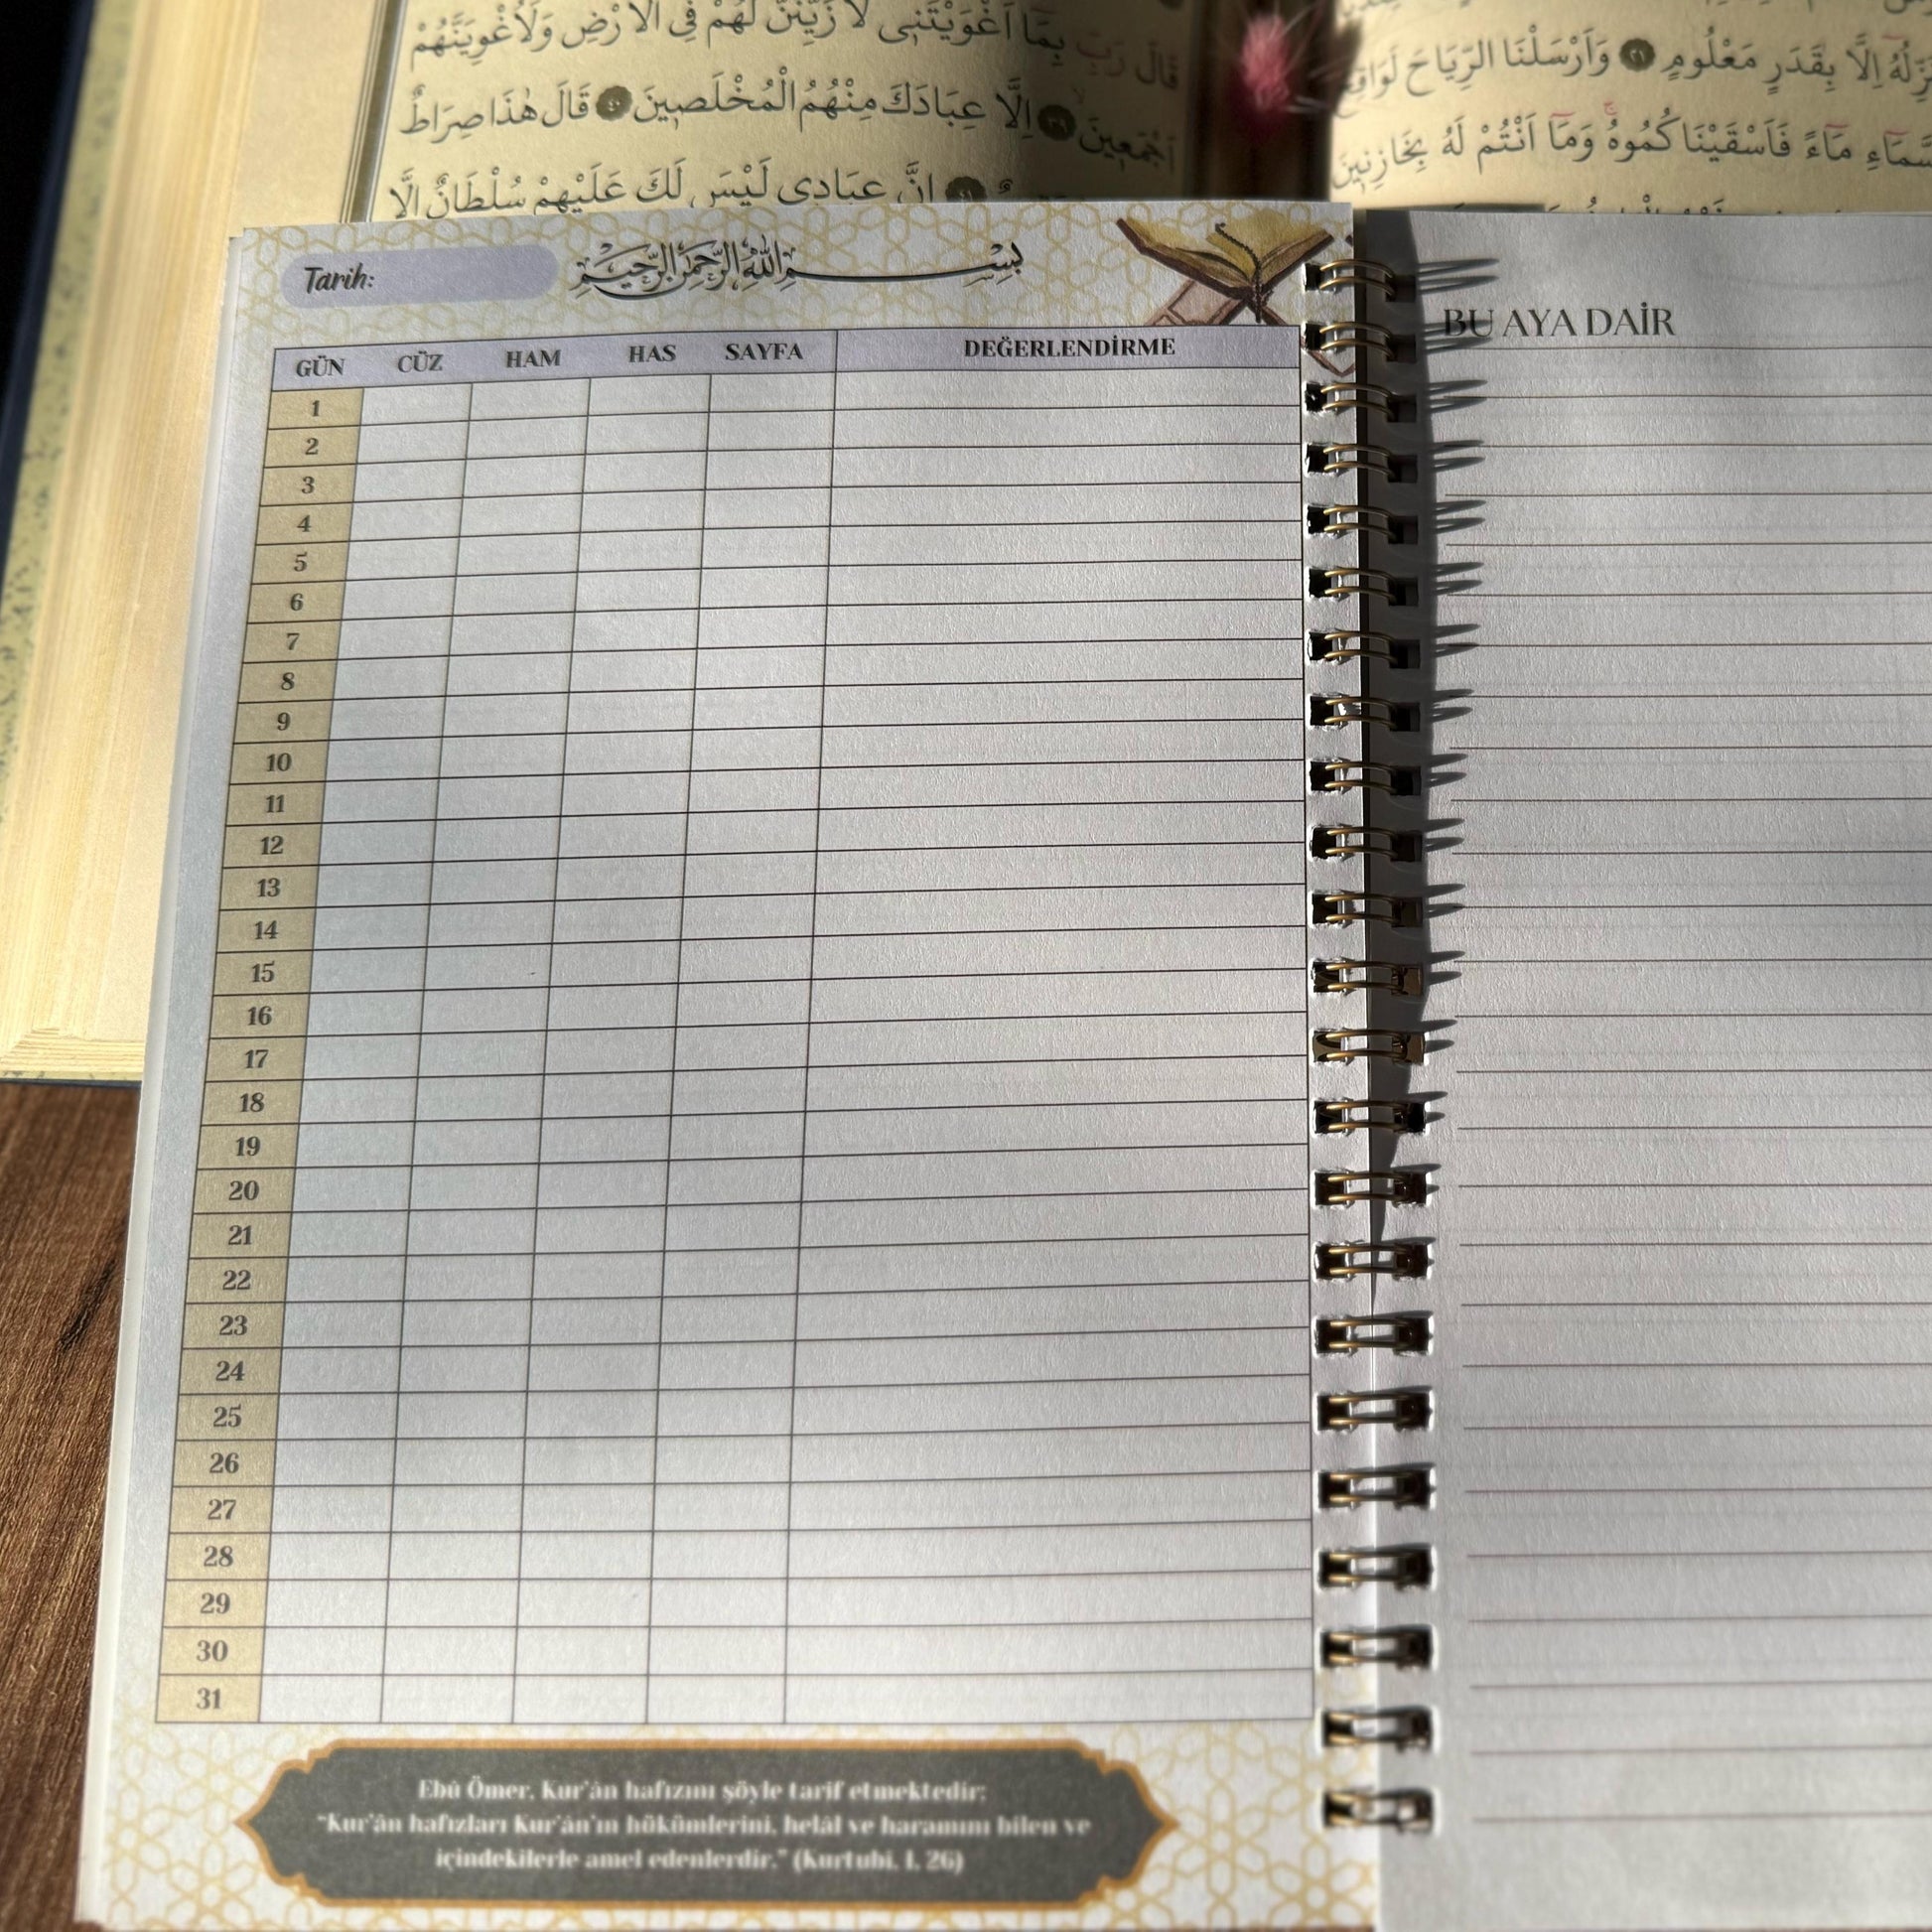 قَالَ رَبِّ بِمَٓا اَغْوَيْتَنٖى لَاُزَيِّنَنَّ لَهُمْ فِى الْاَرْضِ وَلَاُغْوِيَنَّهُمْ
اَجْمَعٖينَ ٣٩ اِلَّا عِبَادَكَ مِنْهُمُ الْمُخْلَصٖينَ ٤٠ قَالَ هٰذَا صِرَاطٌ
اِنَّ عِبَادٖى لَيْسَ لَكَ عَلَيْهِمْ سُلْطَانٌ اِلَّا
اِلَّا بِقَدَرٍ مَعْلُومٍ ٢١ وَاَرْسَلْنَا الرِّيَاحَ لَوَاقِحَ
مَٓاءً فَاَسْقَيْنَاكُمُوهُۚ وَمَٓا اَنْتُمْ لَهُ بِخَازِنٖينَ
Tarih:
بِسْمِ اللّٰهِ الرَّحْمٰنِ الرَّحِيمِ
GÜN CÜZ HAM HAS SAYFA DEĞERLENDİRME
1
2
3
4
5
6
7
8
9
10
11
12
13
14
15
16
17
18
19
20
21
22
23
24
25
26
27
28
29
30
31
Ebû Ömer, Kur'ân hafızını şöyle tarif etmektedir;
"Kur'ân hafızları Kur'ân'ın hükümlerini, helâl ve haramını bilen ve
içindekilerle amel edenlerdir." (Kurtubi, I, 26)
BU AYA DAİR